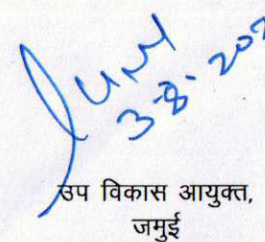 3-8-202
उप विकास आयुक्त,
जमुई